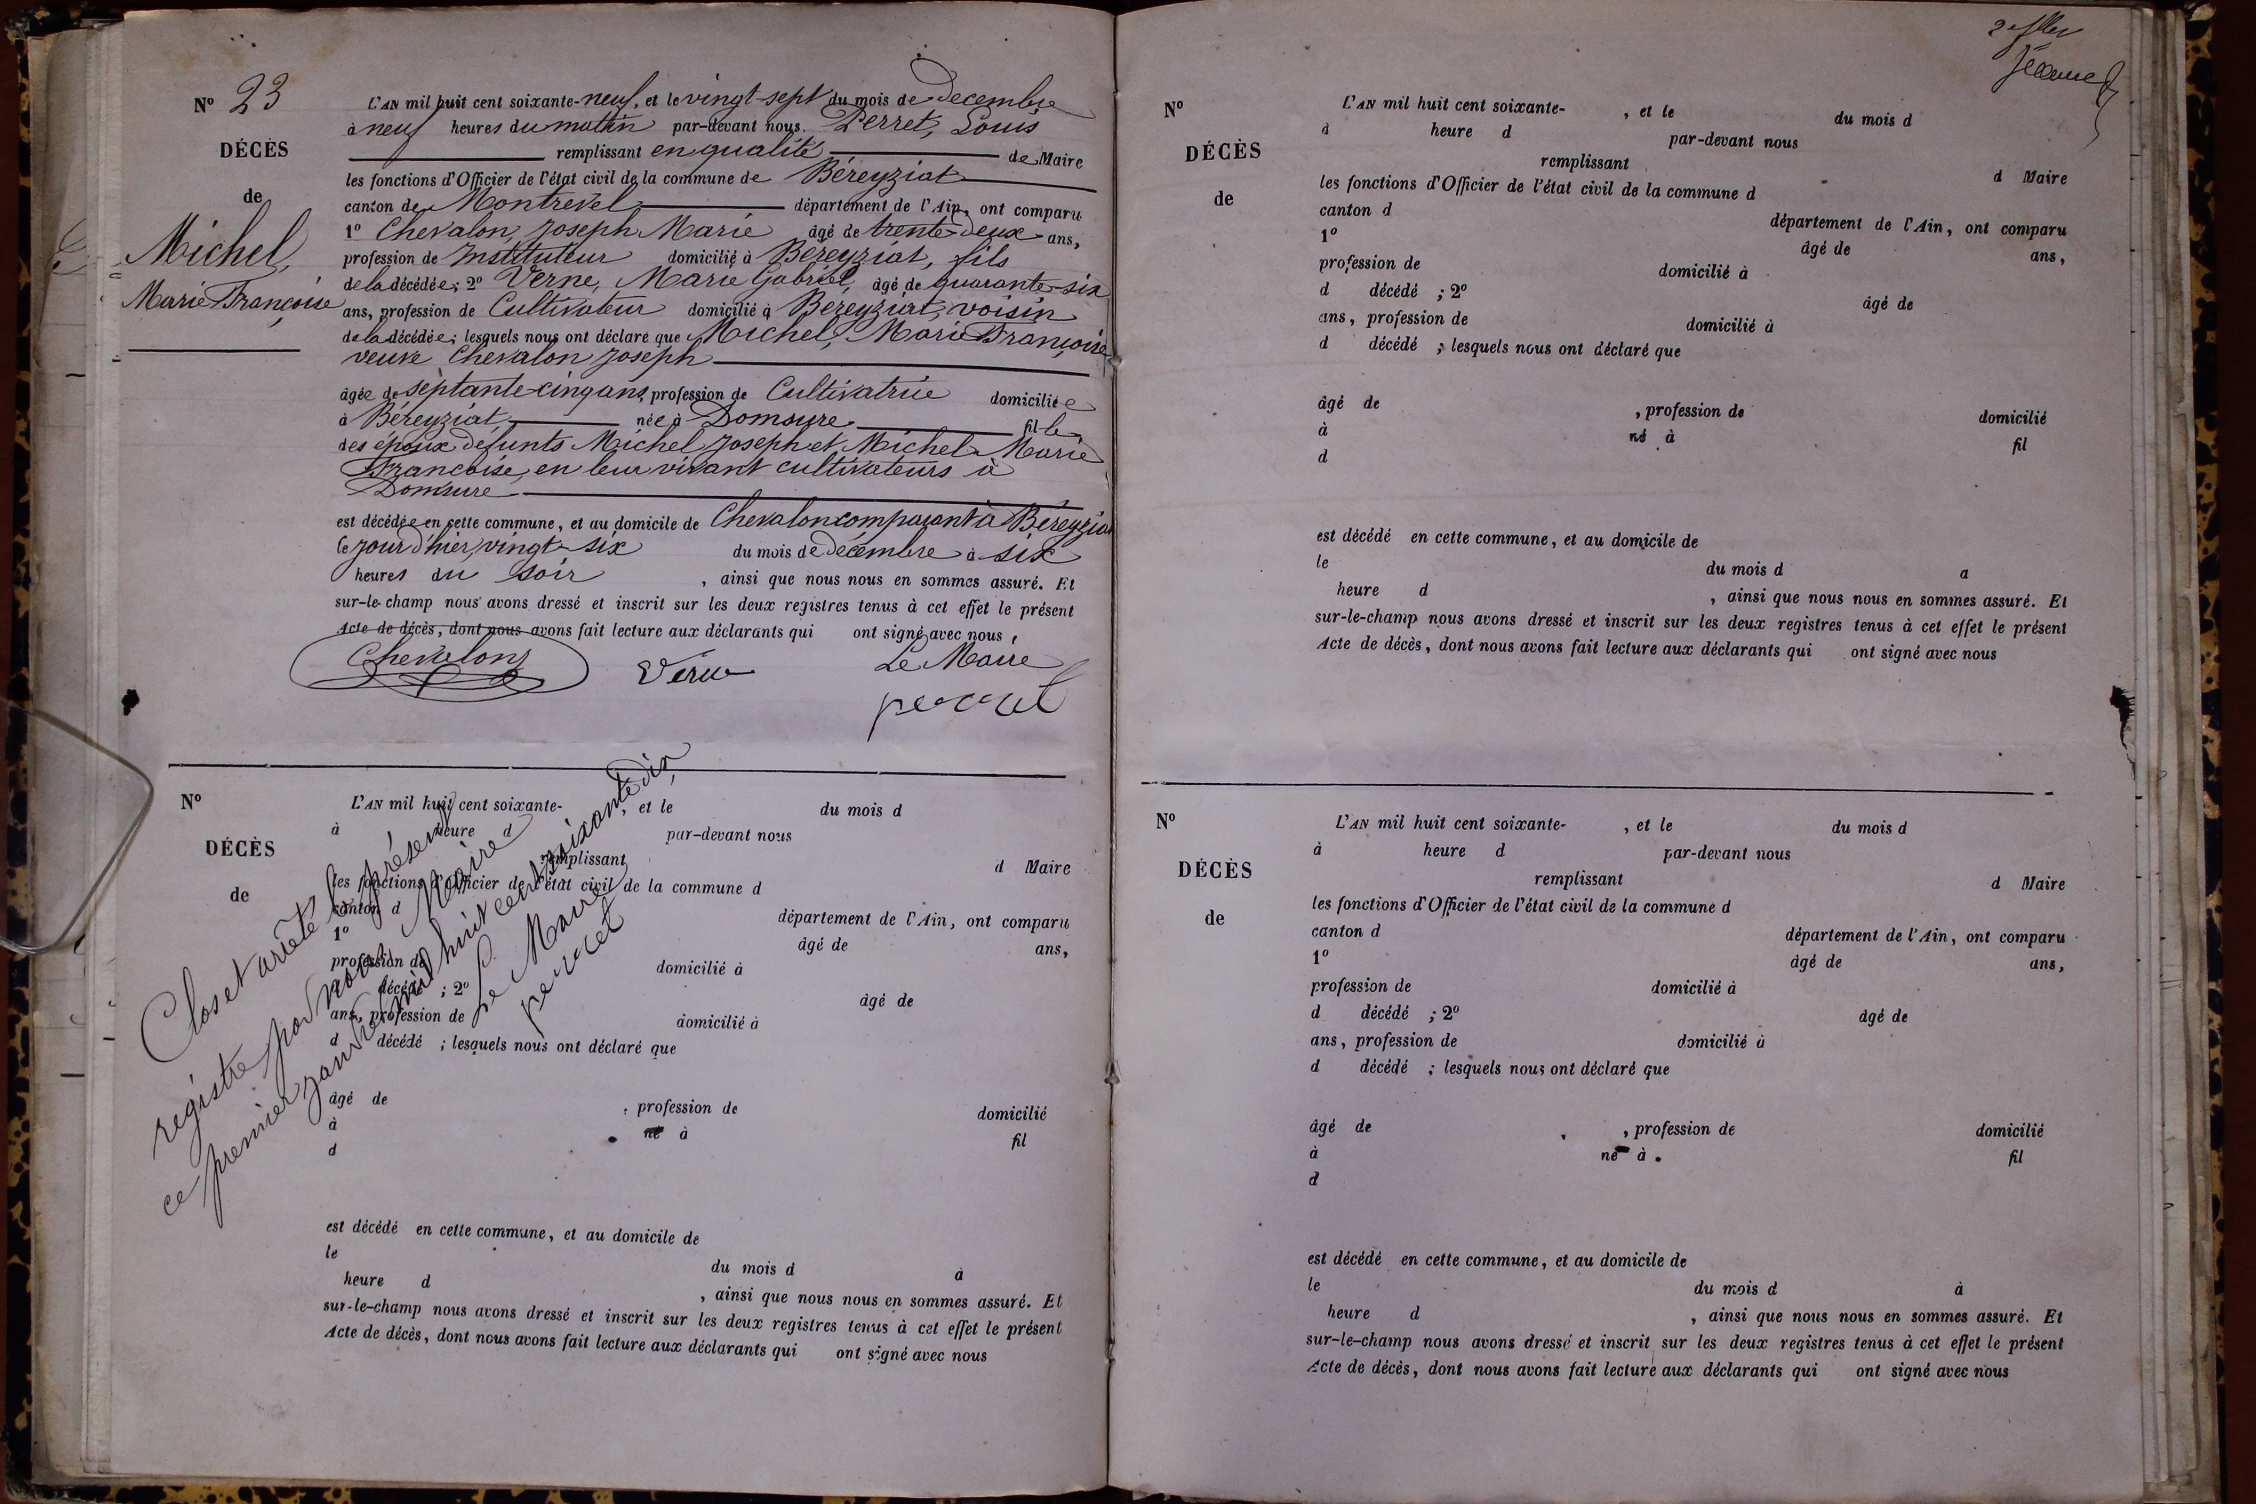 N° 23
DÉCÈS
de
Michel,
Marie Françoise
L'AN mil huit cent soixante-neuf, et le vingt-sept du mois de Decembre
à neuf heures du matin par-devant nous Perret, Louis
remplissant en qualité de Maire
les fonctions d'Officier de l'état civil de la commune de Béreyziat
canton de Montrevel département de l'Ain, ont comparu
1° Chevalon, Joseph Marie âgé de trente deux ans,
profession de Instituteur domicilié à Béreyziat, fils
de la décédée; 2° Verne, Marie Gabriel, âgé de quarante-six
ans, profession de Cultivateur domicilié à Béreyziat, voisin
de la décédée; lesquels nous ont déclaré que Michel, Marie Françoise
veuve Chevalon Joseph
âgée de septante-cinq ans, profession de Cultivatrice domiciliée
à Béreyziat, née à Domsure fille
des époux défunts Michel Joseph et Michel Marie
Françoise, en leur vivant cultivateurs à
Domsure
est décédée en cette commune, et au domicile de Chevalon comparant à Béreyziat
le jour d'hier, vingt-six du mois de décembre à six
heures du soir, ainsi que nous nous en sommes assuré. Et
sur-le-champ nous avons dressé et inscrit sur les deux registres tenus à cet effet le présent
Acte de décès, dont nous avons fait lecture aux déclarants qui ont signé avec nous,
Chevalon Verne Le Maire
perret
N°
DÉCÈS
de
L'AN mil huit cent soixante- , et le du mois d
à heure d par-devant nous
remplissant d Maire
les fonctions d'Officier de l'état civil de la commune d
canton d département de l'Ain, ont comparu
1° âgé de ans,
profession de domicilié à
d décédé ; 2° âgé de
ans, profession de domicilié à
d décédé ; lesquels nous ont déclaré que
âgé de , profession de domicilié
à né à fil
d
est décédé en cette commune, et au domicile de
le du mois d à
heure d , ainsi que nous nous en sommes assuré. Et
sur-le-champ nous avons dressé et inscrit sur les deux registres tenus à cet effet le présent
Acte de décès, dont nous avons fait lecture aux déclarants qui ont signé avec nous
Clos et arrêté le présent
registre par nous Maire
ce premier janvier mil huit cent soixante dix,
Le Maire
perret
Jeanne
N°
DÉCÈS
de
L'AN mil huit cent soixante- , et le du mois d
à heure d par-devant nous
remplissant d Maire
les fonctions d'Officier de l'état civil de la commune d
canton d département de l'Ain, ont comparu
1° âgé de ans,
profession de domicilié à
d décédé ; 2° âgé de
ans, profession de domicilié à
d décédé ; lesquels nous ont déclaré que
âgé de , profession de domicilié
à né à fil
d
est décédé en cette commune, et au domicile de
le du mois d a
heure d , ainsi que nous nous en sommes assuré. Et
sur-le-champ nous avons dressé et inscrit sur les deux registres tenus à cet effet le présent
Acte de décès, dont nous avons fait lecture aux déclarants qui ont signé avec nous
N°
DÉCÈS
de
L'AN mil huit cent soixante- , et le du mois d
à heure d par-devant nous
remplissant d Maire
les fonctions d'Officier de l'état civil de la commune d
canton d département de l'Ain, ont comparu
1° âgé de ans,
profession de domicilié à
d décédé ; 2° âgé de
ans, profession de domicilié à
d décédé ; lesquels nous ont déclaré que
âgé de , profession de domicilié
à né à fil
d
est décédé en cette commune, et au domicile de
le du mois d à
heure d , ainsi que nous nous en sommes assuré. Et
sur-le-champ nous avons dressé et inscrit sur les deux registres tenus à cet effet le présent
Acte de décès, dont nous avons fait lecture aux déclarants qui ont signé avec nous